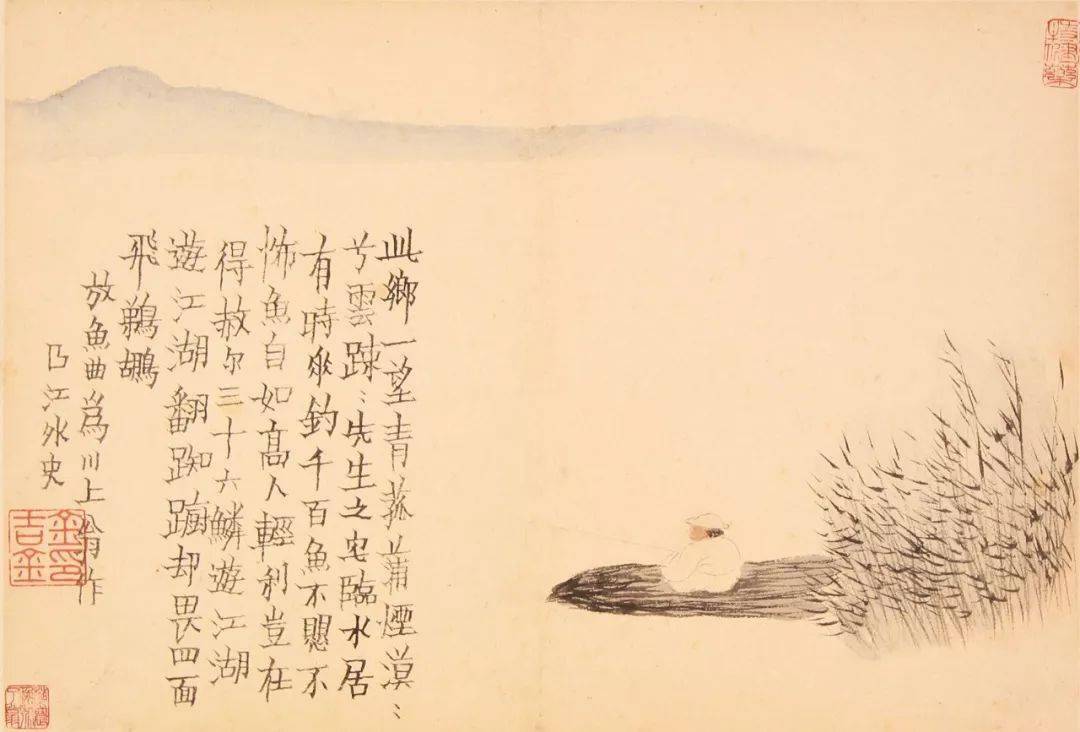 此鄉一望青菰蒲煙漠〻
兮雲踈〻先生之宅臨水居
有時垂釣千百魚不愳不
怖魚自如高人輕利豈在
得赦尔三十六鱗遊江湖
遊江湖翻踟躕却畏四面
飛鵜鶘
放魚曲爲川上翁作
曲江外史
金吉金印